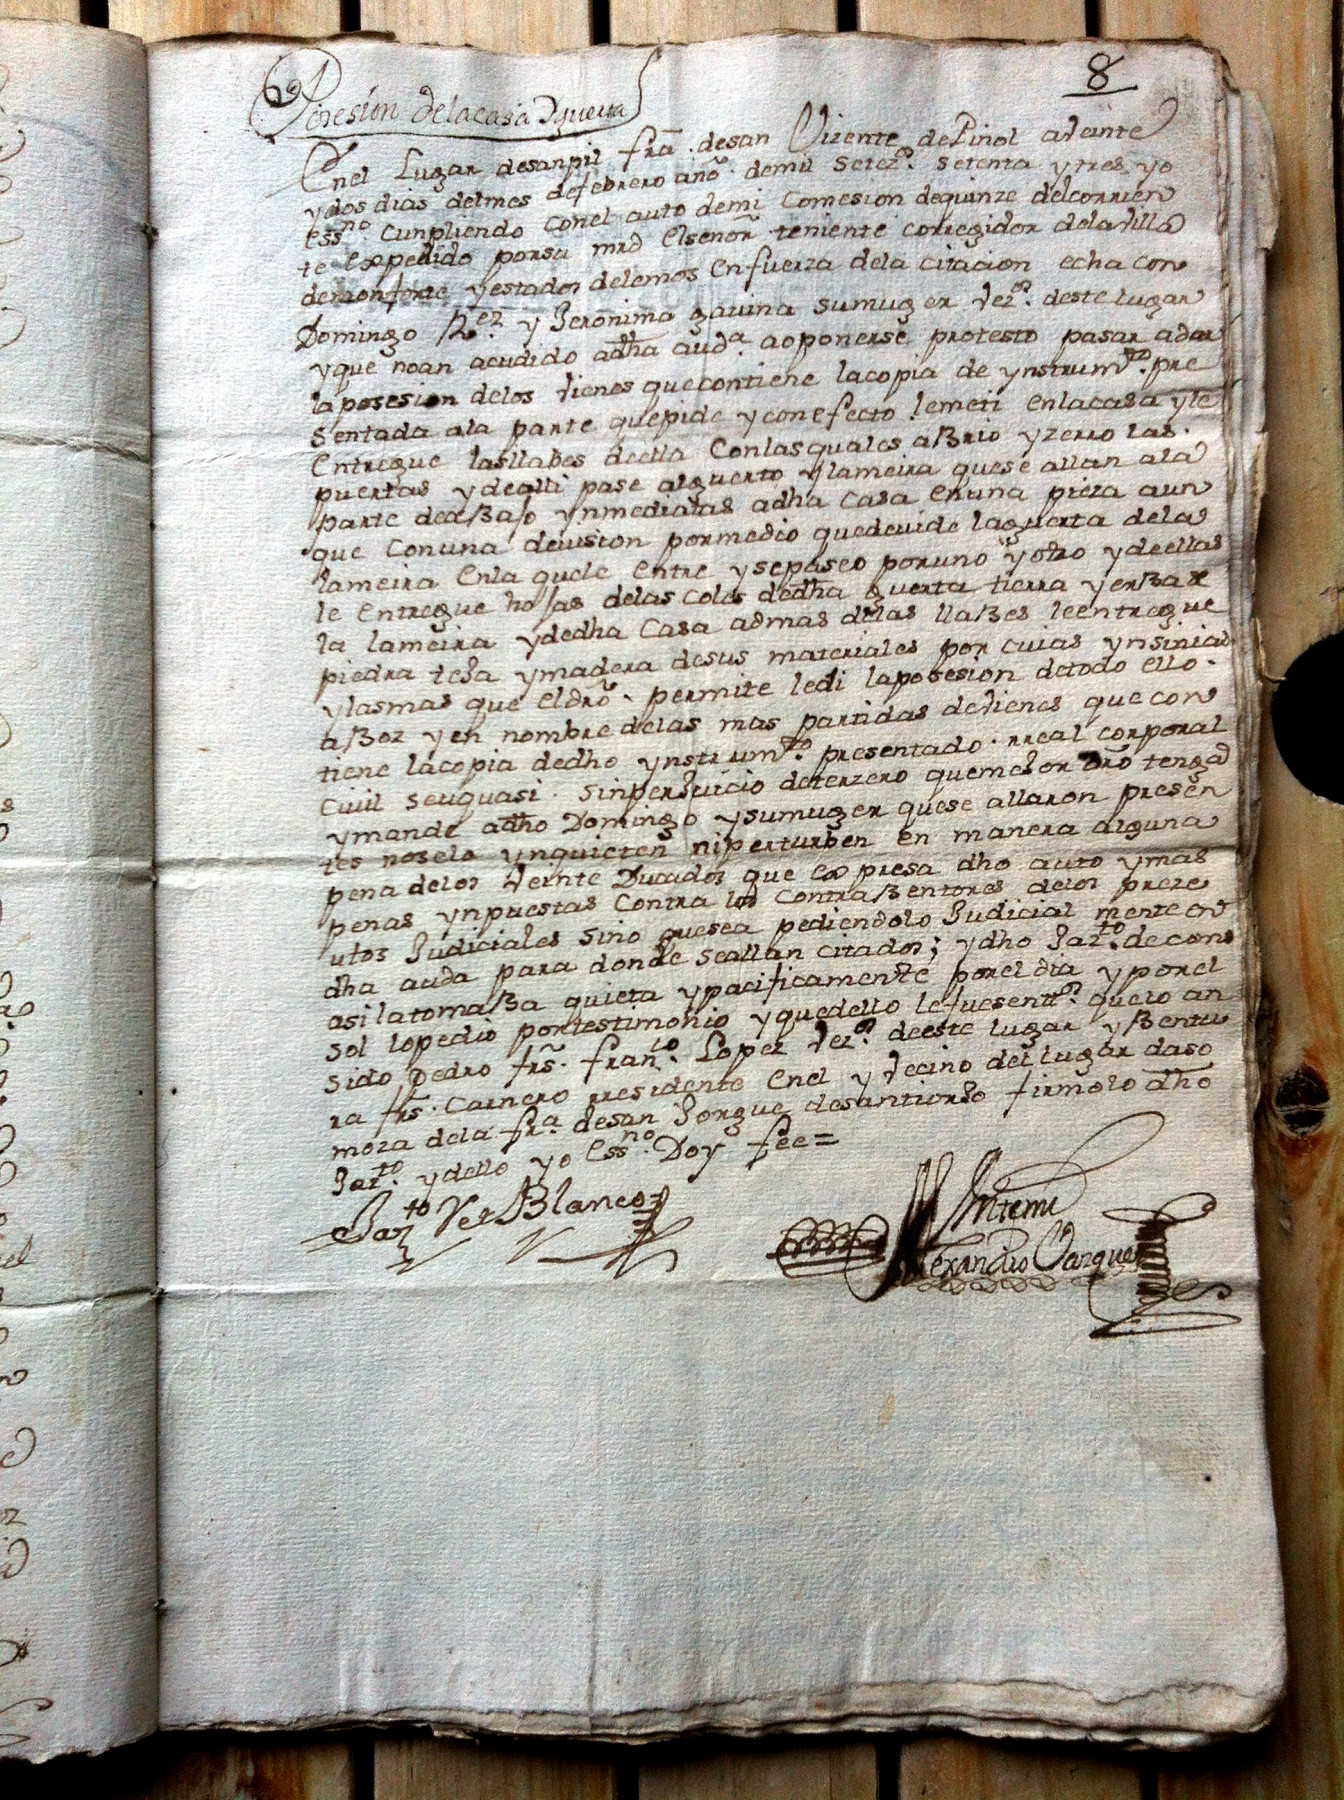 8
Posesion delacasa Yguerta
Enel Lugar desanpil frã. desan Vizente dePinol aveinte
ydos dias delmes defebrero año demil setezs. setenta ytres yo
essno. cunpliendo conel auto demi comesion dequinze delcorrien
te expedido porsu mrd elsenor teniente corregidor delavilla
demonforte yestados delemos enfuerza dela citacion echacon
Domingo Rez y Jeronima gavina sumuger vezos. deste lugar
yque noan acudido adha auda. aoponerse protesto pasar adar
laposesion delos vienes quecontiene lacopia de ynstrumto. pre
sentada ala parte quepide yconefecto lemeti enlacasa yle
entregue lasllabes deella conlasquales abrio yzerro las
puertas ydealli pase alguerto ylameira quese allan ala
parte deabajo ynmediatas adha casa enuna pieza aun
que conuna deuision pormedio quedeuide laguerta dela
lameira enla quele entre ysepaseo poruno yotro ydeellas
le entregue hojas delas coles dedha guerta tierra yerba de
la lameira ydedha casa admas delas llabes leentregue
piedra teja ymadera desus materiales por cuias ynsinias
ylasmas que eldro. permite ledi laposesion detodo ello
aboz yen nombre delas mas partidas devienes que con
tiene lacopia dedho ynstrumto. presentado rreal corporal
ciuil seuquasi sinperjuicio deterzero quemejor dro tenga
ymande adho Domingo ysumuger quese allaron presen
tes noselo ynquieten niperturben en manera alguna
pena delos veinte Ducados que expresa dho auto ymas
penas ynpuestas contra los contrabentores delos preze
utos Judiciales sino quesea pediendolo Judicial mente en
dha auda para donde seallan citados; ydho Jazto. decomo
asi latomaba quieta ypacificamente porel dia yporel
sol lopedio portestimonio yquedello lefuesen tos. quelo an
sido Pedro frs. franco. Lopez vezos. deeste lugar ybentu
ra frs. carnero rresidente enel y vecino del lugar daso
moza dela fra. desan Jorgue desantiorjo firmolo dho
Jazto. ydello yo essno. Doy fee=
Jazto Vez Blanco
Antemi
Alexandro Vazquez